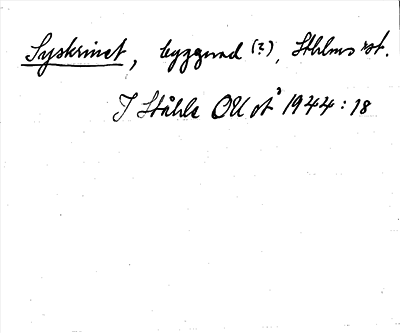 Syskrinet, byggnad (?), Sthlms st.
J Ståhle OU å 1944: 18